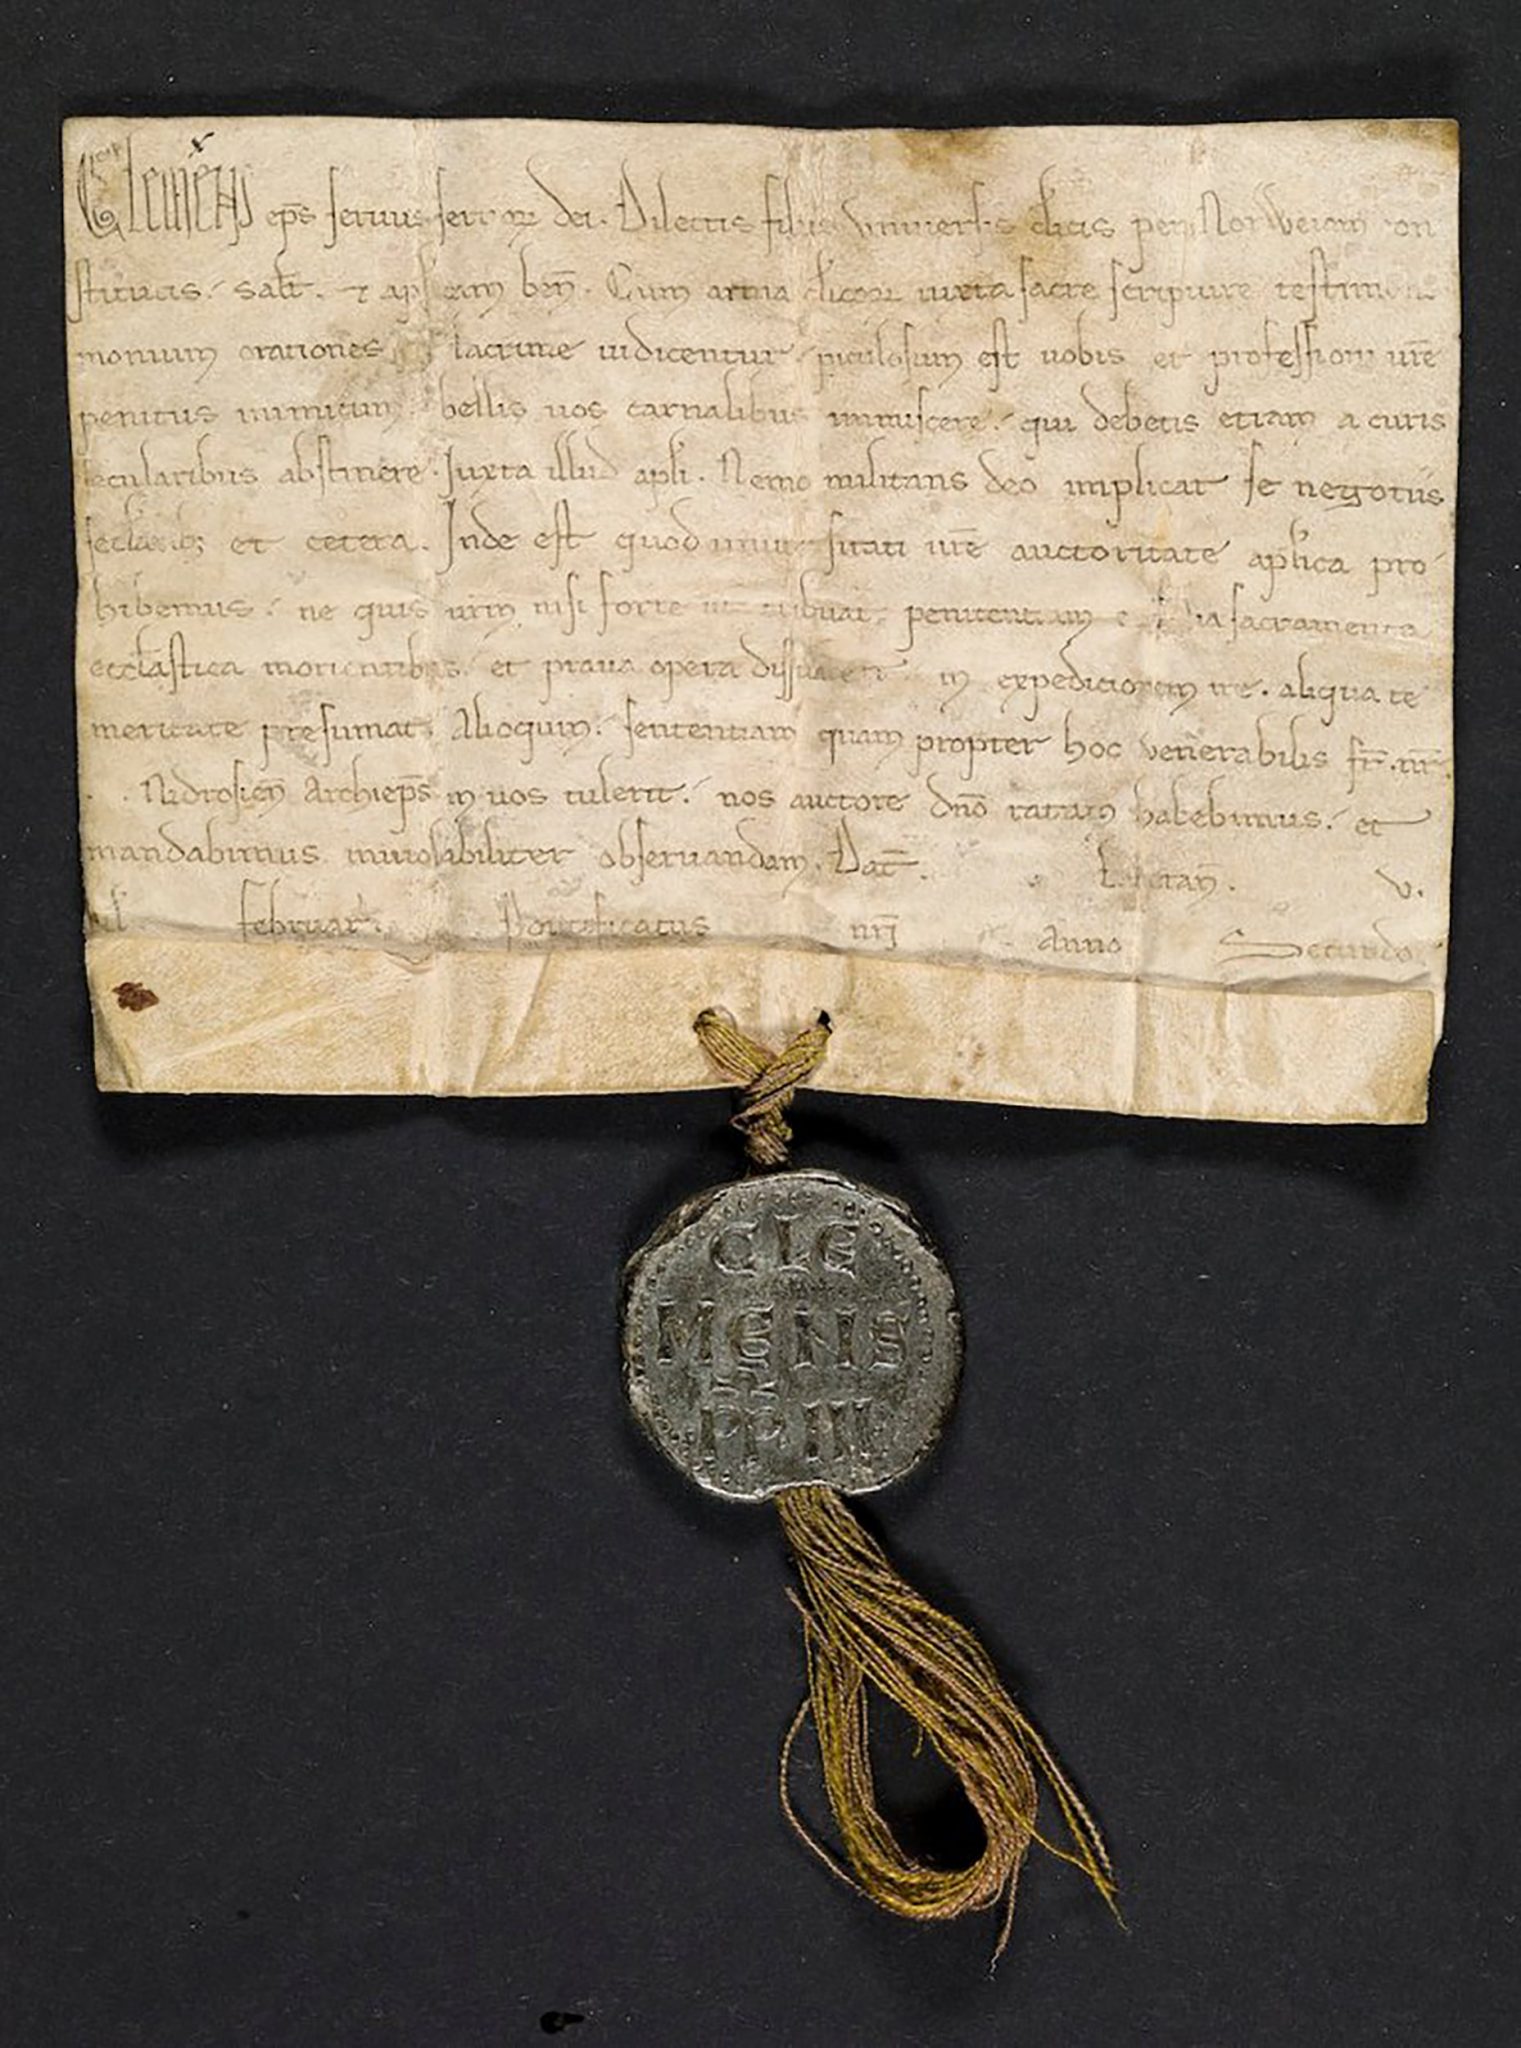 Clemens ep̄s seruus seruoꝝ dei. Dilectis filiis vniuersis cl̄icis per Norweiam con
stitutis. salt̄. ⁊ apl̓icam ben̄. Cum arma cl̄icoꝝ iuxta sacre scripture testimoni
monium orationes lacrime iudicentur. piculosum est uobis et professioni ur̄e
penitus inimicum. bellis uos carnalibus inmiscere. qui debetis etiam a curis
secularibus abstinere. Iuxta illud apl̄i. Nemo militans deo implicat se negotiis
sećlarib; et cetera. Inde est quod uniuersitati ur̄e auctoritate apl̄ica pro
hibemus. ne quis urm̄ nisi forte ut tribuat penitentiam et alia sacramenta
eccl̄astica morientibus. et praua opera dissuadeat in expeditionem ire. aliqua te
meritate presumat. Alioquin. sententiam quam propter hoc venerabilis fr̄. nr̄.
. . Nidrosien̄ Archiep̄s in uos tulerit. nos auctore dn̄o ratam habebimus. et
mandabimus inuiolabiliter obseruandam. Dat̄. Lateran̄. v.
kl̓ februar̄. Pontificatus nrī Anno Secundo.
CLE
MENS
PP III